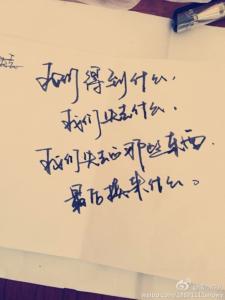 我们得到什么.
我们失去什么.
我们失去的那些东西.
最后换来什么。